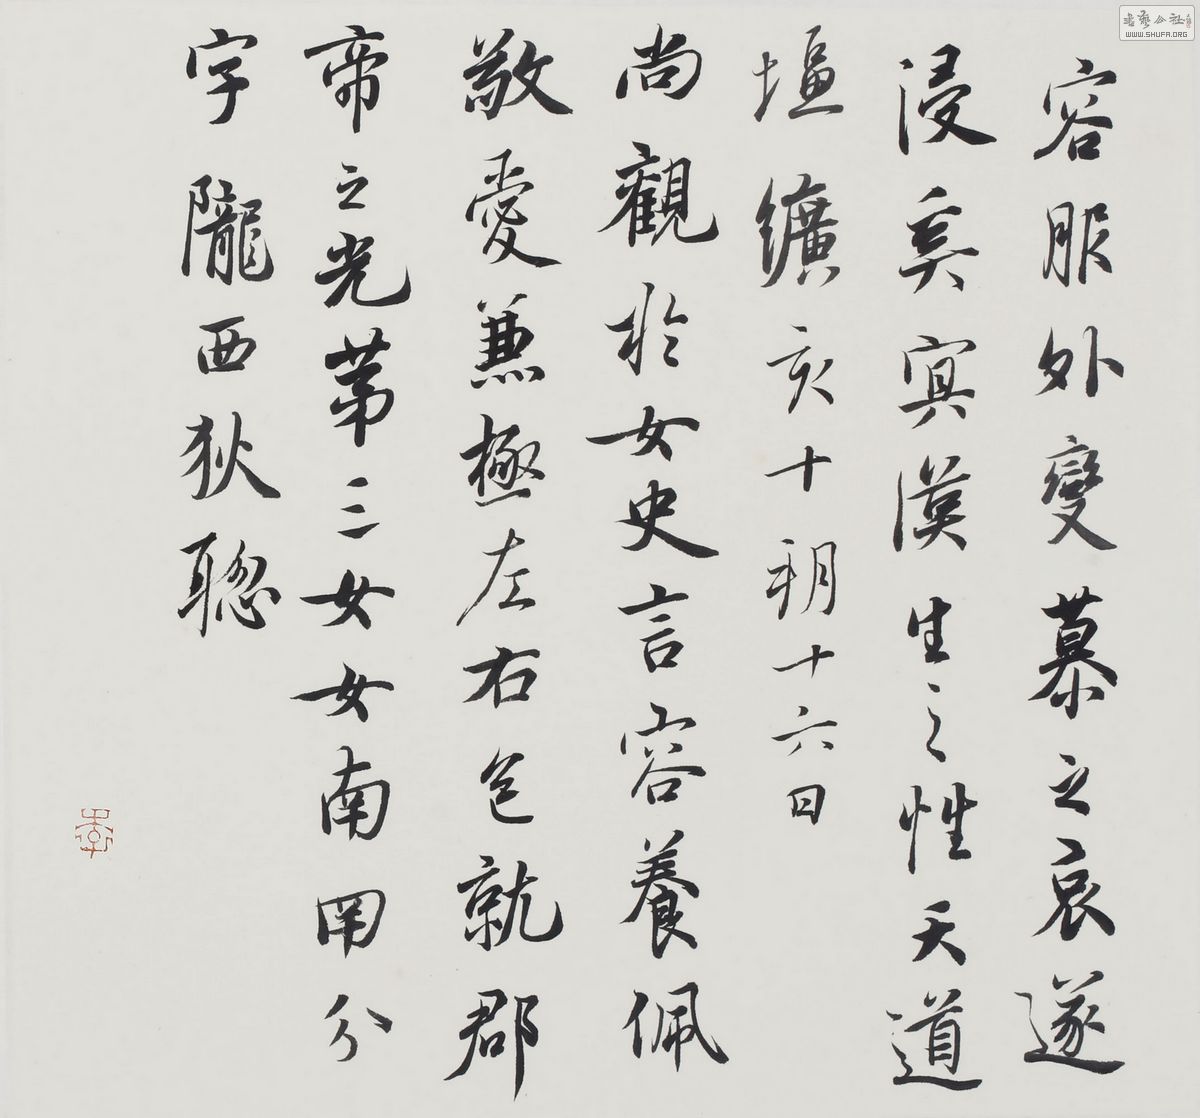 容服外變慕之哀遂
浸矣冥漠生之性天道
堛纊亥十朔十六日
尚觀於女史言容養佩
敬愛兼極左右邑就郡
帝之光第三女女南罔分
字隴西狄聰
書藝公社
WWW.SHUFA.ORG